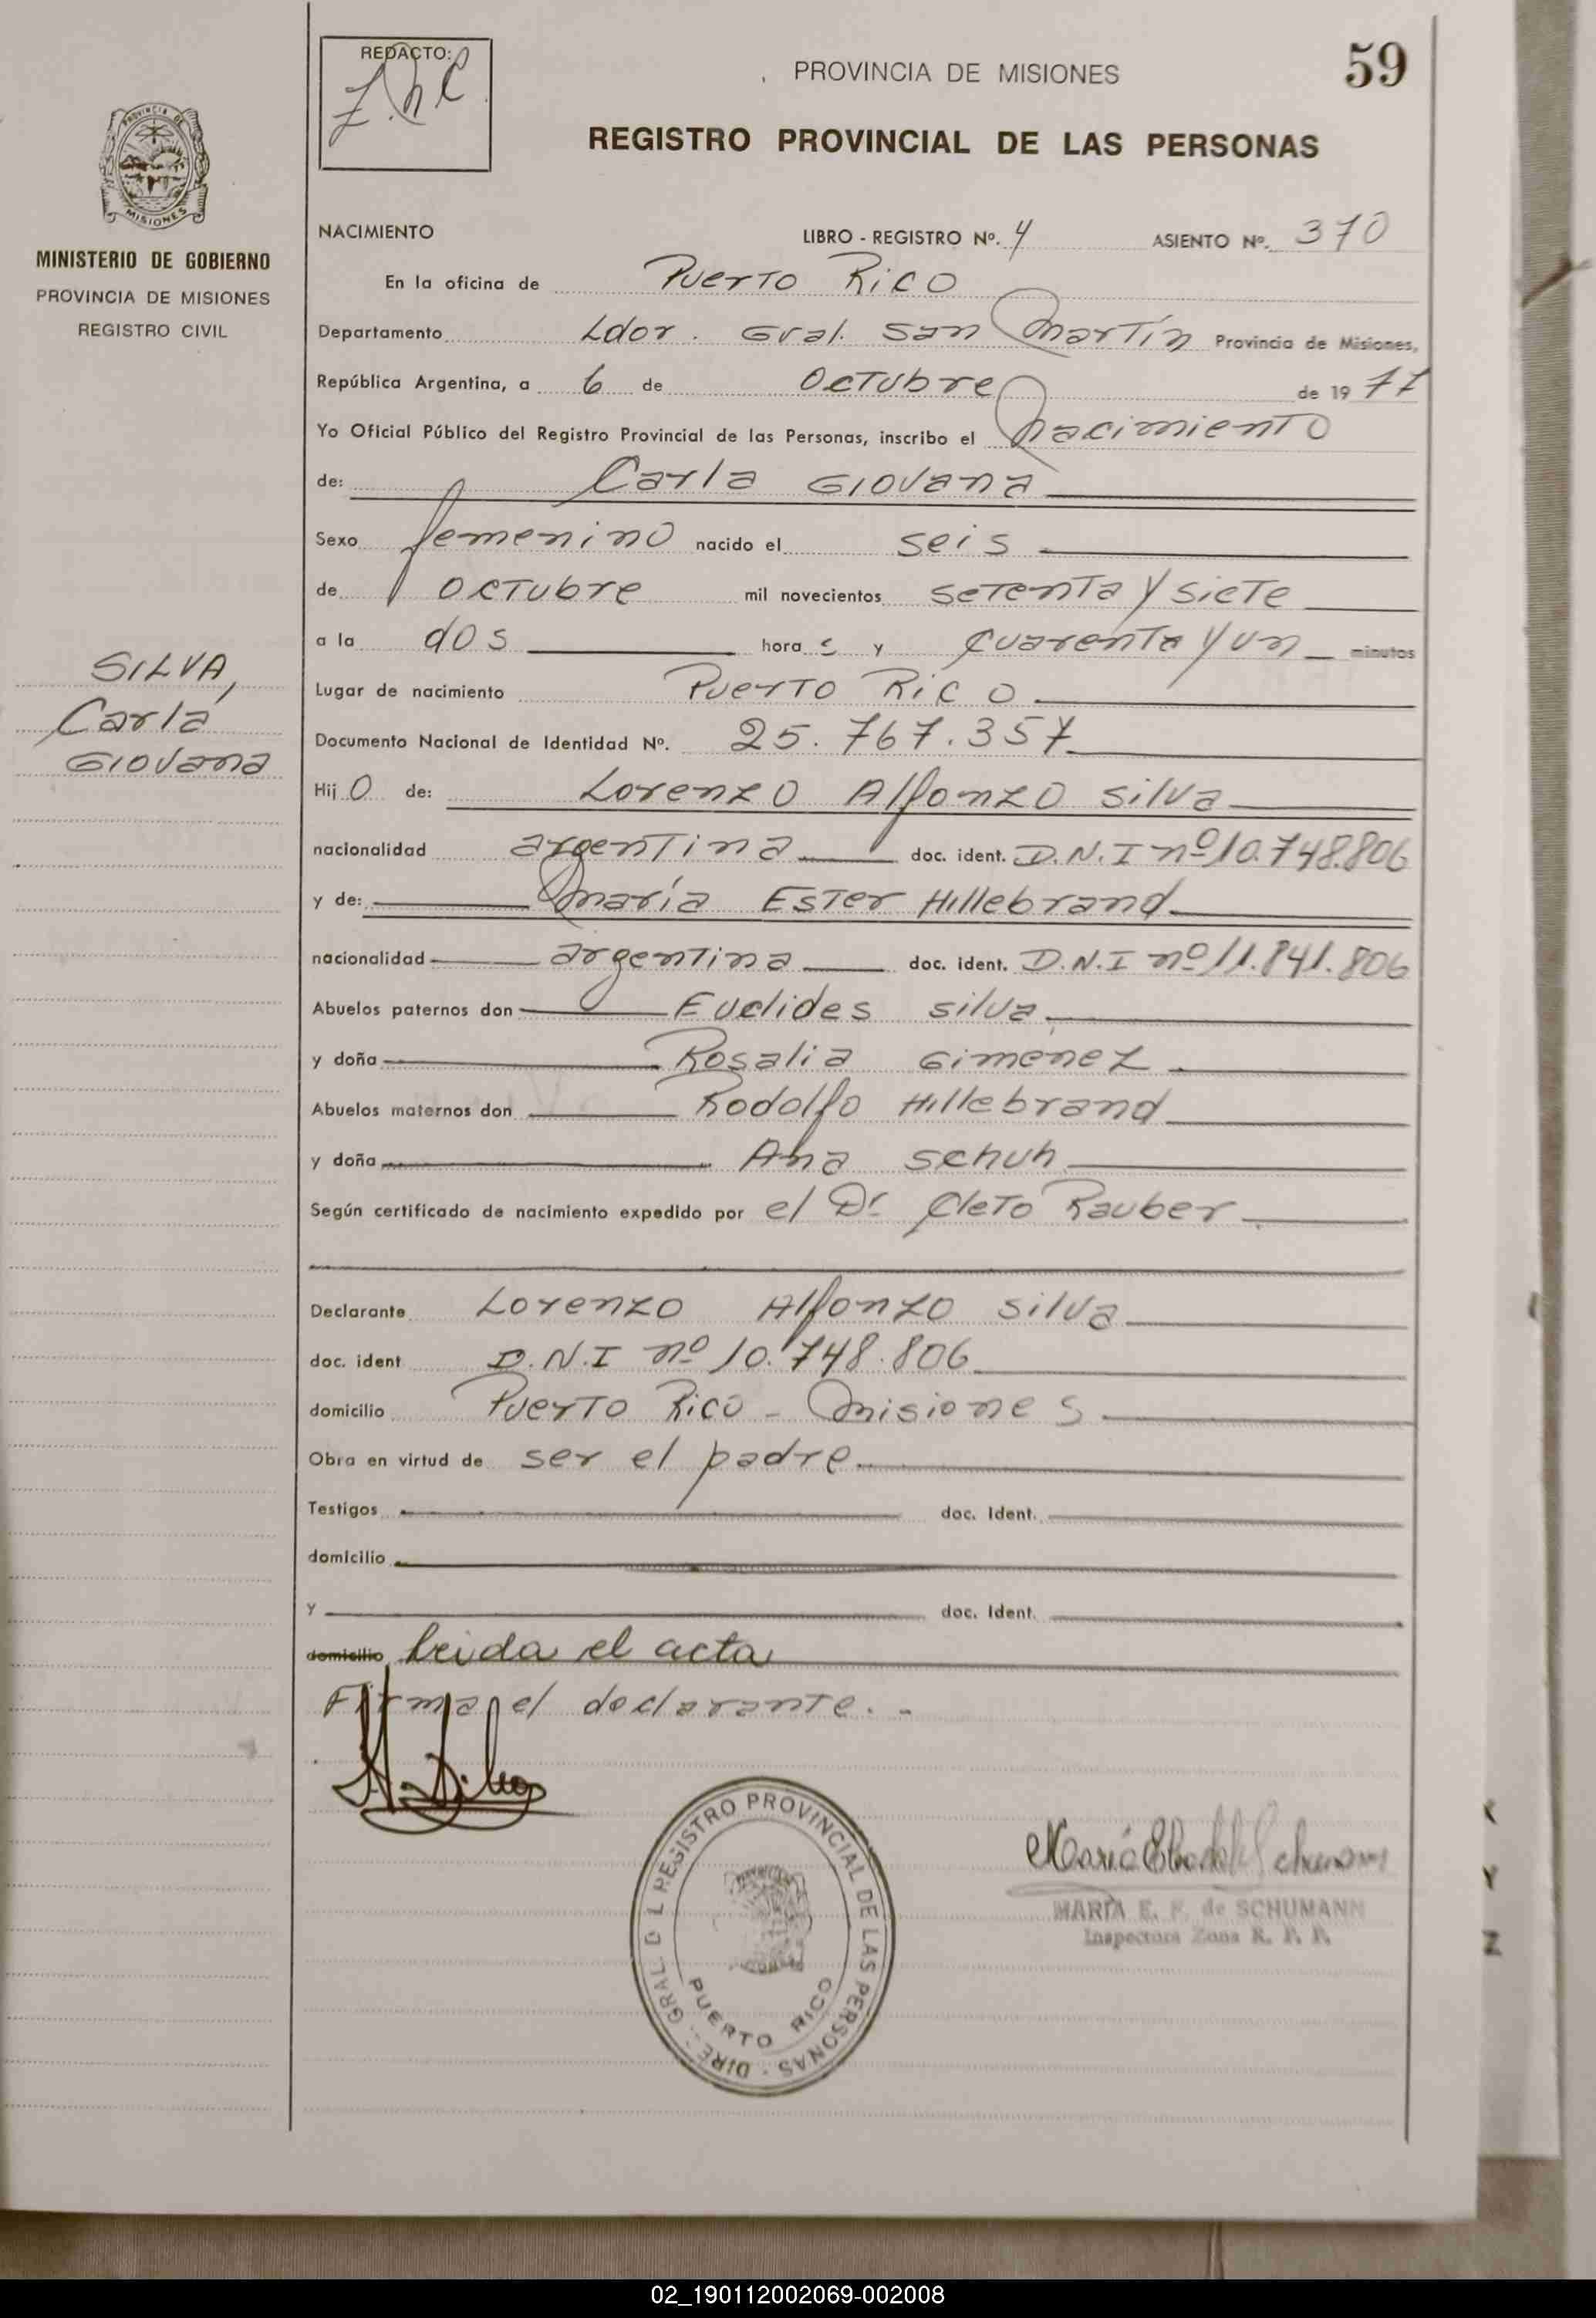 REDACTO:
PROVINCIA DE MISIONES
59
REGISTRO PROVINCIAL DE LAS PERSONAS
PROVINCIA DE
MISIONES
MINISTERIO DE GOBIERNO
PROVINCIA DE MISIONES
REGISTRO CIVIL
SILVA,
Carla
Giovana
NACIMIENTO LIBRO - REGISTRO Nº. 4 ASIENTO Nº. 370
En la oficina de Puerto Rico
Departamento Ldor. Gral. San Martín Provincia de Misiones,
República Argentina, a 6 de Octubre de 19 77
Yo Oficial Público del Registro Provincial de las Personas, inscribo el nacimiento
de: Carla Giovana
Sexo femenino nacido el seis
de octubre mil novecientos setenta y siete
a la dos hora s y cuarenta y un minutos
Lugar de nacimiento Puerto Rico
Documento Nacional de Identidad Nº. 25.767.357
Hij o de: Lorenzo Alfonzo Silva
nacionalidad argentina doc. ident. D.N.I nº 10.748.806
y de: María Ester Hillebrand
nacionalidad argentina doc. ident. D.N.I nº 11.841.806
Abuelos paternos don Euclides Silva
y doña Rosalia Gimenez
Abuelos maternos don Rodolfo Hillebrand
y doña Ana Schuh
Según certificado de nacimiento expedido por el Dr. Cleto Rauber
Declarante Lorenzo Alfonzo Silva
doc. ident D.N.I nº 10.748.806
domicilio Puerto Rico - Misiones
Obra en virtud de ser el padre
Testigos doc. Ident.
domicilio
y doc. Ident.
domicilio leida el acta
Firma el declarante. -
A. Silva
DIRE. GRAL D L REGISTRO PROVINCIAL DE LAS PERSONAS
PUERTO RICO
MARIA E. F. de SCHUMANN
Inspectora Zona R. P. P.
X
Y
Z
02_190112002069-002008